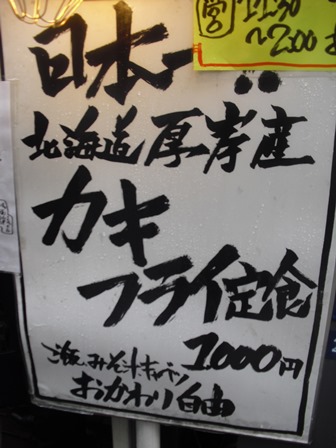 営 11:30
～2:00
日本一
北海道厚岸産
カキ
フライ定食
1000円
ご飯、みそ汁、キャベツ
おかわり自由